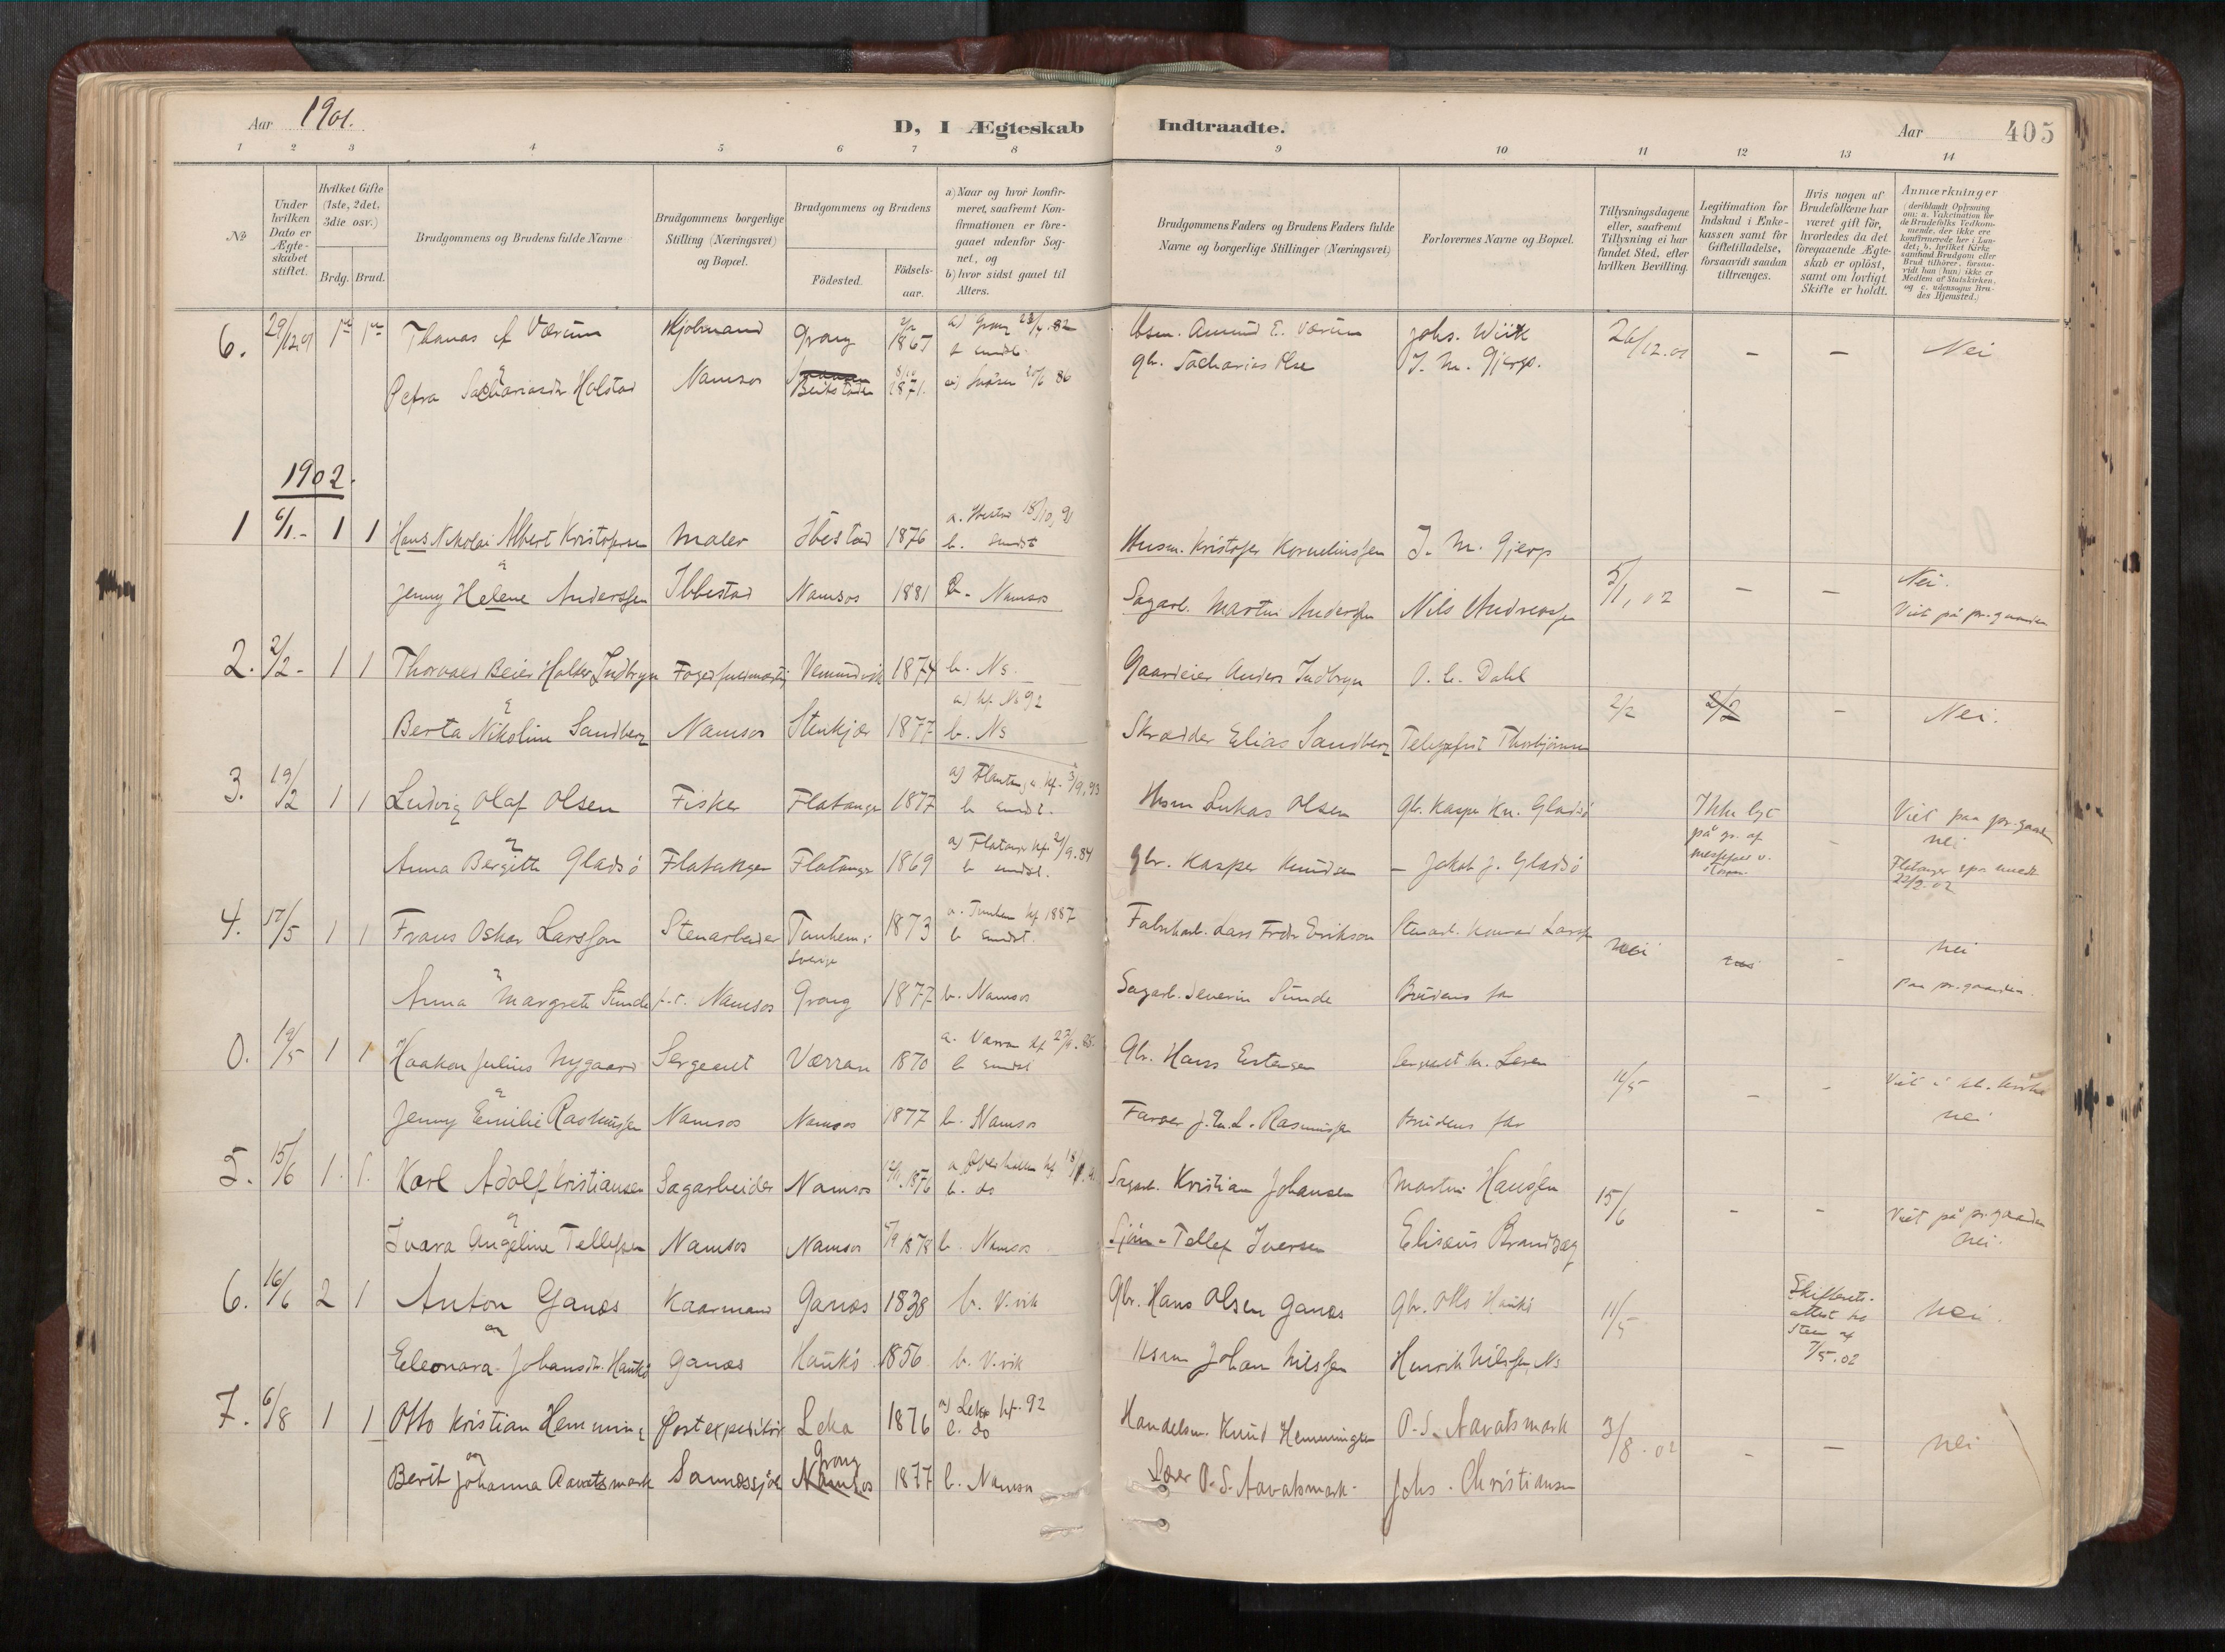 Aar 1901.
D, I Ægteskab Indtraadte.
Aar 405
1 2 3 4 5 6 7 8 9 10 11 12 13 14
№
Under hvilken Dato er Ægteskabet stiftet.
Hvilket Gifte (1ste, 2det, 3die osv.)
Brdg. Brud.
Brudgommens og Brudens fulde Navne
Brudgommens borgerlige Stilling (Næringsvei) og Bopæl.
Brudgommens og Brudens
Födested.
Födselsaar.
a) Naar og hvor konfirmeret, saafremt Konfirmationen er foregaaet udenfor Sognet, og
b) hvor sidst gaaet til Alters.
Brudgommens Faders og Brudens Faders fulde Navne og borgerlige Stillinger (Næringsvei)
Forlovernes Navne og Bopæl.
Tillysningsdagene eller, saafremt Tillysning ei har fundet Sted, efter hvilken Bevilling.
Legitimation for Indskud i Enkekassen samt for Giftetilladelse, forsaavidt saadan tiltrænges.
Hvis nogen af Brudefolkene har været gift för, hvorledes da det foregaaende Ægteskab er oplöst, samt om lovligt Skifte er holdt.
Anmærkninger
(deriblandt Oplysning om: a. Vakcination for de Brudefolks Vedkommende, der ikke ere konfirmerede her i Landet; b. hvilket Kirkesamfund Brudgom eller Brud tilhörer, forsaavidt han (hun) ikke er Medlem af Statskirken, og c. udensogns Brudes Hjemsted.)
6. 29/12.01 1ste 1ste Thomas Værum Kjöbmand Grong 1865 a) Grong 82 b smdst. Amund E. Værum Johs. Wiik 26/12.01 – – Nei
Petra Sachariasdr Holstad Namsos Beitstaden 8/10 1871. 86 Gbr. Sacharias Olse J. M. Gjerp.
1902.
1 6/1.- 1 1 Hans Nikolai Albert Kristofersen Maler Ibestad 1876 a. Ibestad 18/10, 91 b. smdst Husm. Kristofer Korneliussen J. M. Gjerp
Jenny Helene Anderssen Ibbestad Namsos 1881 b. Namsos Sagarb. Martin Anderssen Nils Andreassen 5/1, 02 – – Nei. Viet på pr.gaarden
2. 2/2- 1 1 Thorvald Beier Holter Indbryn Fogedfuldmægtig Vemundvik 1874 b. Ns. Gaardeier Anders Indbryn O. C. Dahl
Berta Nikoline Sandberg Namsos Stenkjær 1877 a) kf. Ns 92 b. Ns Skrædder Elias Sandberg Telegrafist Thorbjörnsen 2/2 2/2 – Nei.
3. 19/2 1 1 Ludvig Olaf Olsen Fisker Flatanger 1877 kf. 3/9.93 b smdst. Husm Lukas Olsen Gbr. Kasper Kn. Gladsö Ikke lyst på gr. af messefald v. Viet paa pr.gaarden nei
Anna Bergitte Gladsö Flatanger Flatanger 1869 a) Flatanger kf. 2/9.84 b smdst. Gbr. Kasper Knudsen – Jakob J. Gladsö Flatanger 22/2.02
4. 17/5 1 1 Frans Oskar Larsson Stenarbeider Tunhem i Sverige 1873 a. Tunhem kf 1887 b smdst. Fabrikarb. Lars Fredr Erikson Stenarb. Konrad Larsson nei – nei
Anna Margrete Sunde p.t. Namsos Grong 1877 b. Namsos Sagarb. Severin Sunde Brudens far paa pr.gaarden.
0. 19/5 1 1 Haakon Julius Nygaard Sergeant Værran 1870 a. Værran kf b smdst Gbr. Hans Estensen Sergeant
Jenny Emilie Rasmussen Namsos Namsos 1877 b. Namsos Farver J. M. L. Rasmussen Brudens far 11/5 – – nei
5. 15/6 1. 1. Karl Adolf Kristiansen Sagarbeider Namsos 1876 a. Overhallen kf. b. do Sagarb. Kristian Johansen Martin Hanssen
Ivara Angeline Tellefsen Namsos Namsos 1878 b. Namsos Sjöm. Tellef Iversen Elisæus Brandzæg 15/6 – – Viet på pr.gaarden nei.
6. 16/6 2 1 Anton Ganæs Kaarmand Ganæs 1838 b. V.vik Gbr. Hans Olsen Ganæs Gbr. Otto Haukö
Eeleonara Johansdr. Haukö Ganæs Haukö 1856 b. V.vik Husm Johan Nilssen Henrik Nilssen, Ns 11/5 Skifterets-attest 7/5.02 nei.
7. 6/8 1 1 Otto Kristian Hemming Postexpeditör Leka 1876 a) Leka kf. 92 b. do Handelsm. Knud Hemmingsen O. S. Aavatsmark
Berit Johanna Aavatsmark Sannessjöe Namsos Grong 1877 b. Namsos Lærer O. S. Aavatsmark. Johs. Christiansen 3/8.02 – – nei